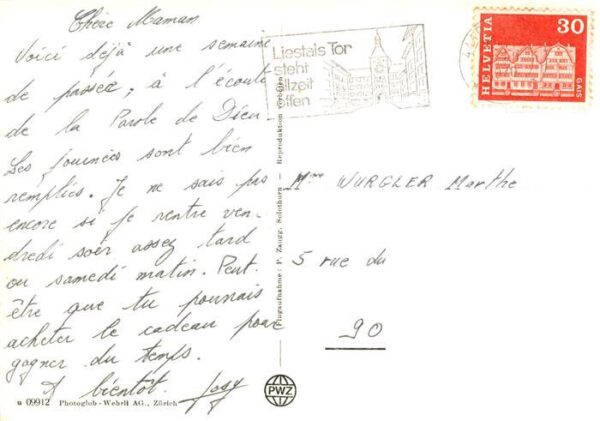 Chère Maman
Voici déjà une semaine
de passée, à l'écoute
de la Parole de Dieu.
Les journées sont bien
remplies. Je ne sais pas
encore si je rentre ven-
dredi soir assez tard
ou samedi matin. Peut-
être que tu pourrais
acheter le cadeau pour
gagner du temps.
A bientôt. Josy
u 09912 Photoglob-Wehrli AG., Zürich
Flugaufnahme: P. Zaugg, Solothurn - Reproduktion verboten
PWZ
Liestals Tor
steht
allzeit
offen
HELVETIA
30
GAIS
Mme WURGLER Marthe
5 rue du
90